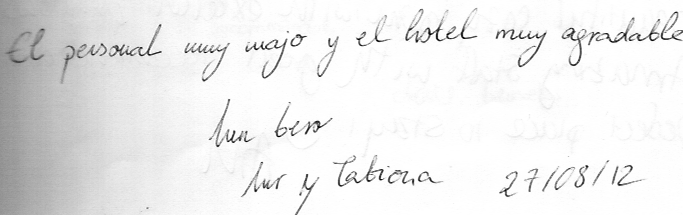 El personal muy majo y el hotel muy agradable
Un beso
y Tatiana 27/08/12